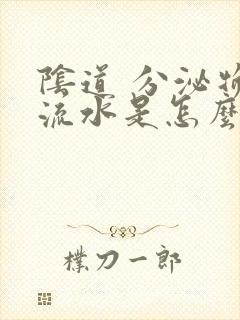 陰道 分泌物
流水是怎麼
樸刀一郎